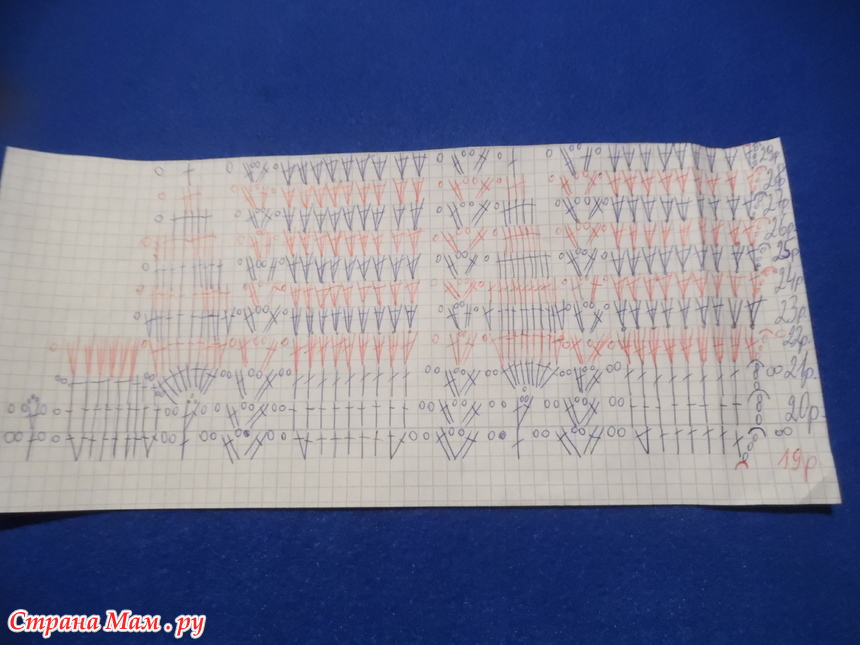 29р.
28р
27р.
26р.
25р.
24р
23р.
22р.
21р.
20р.
19р
Страна Мам.ру